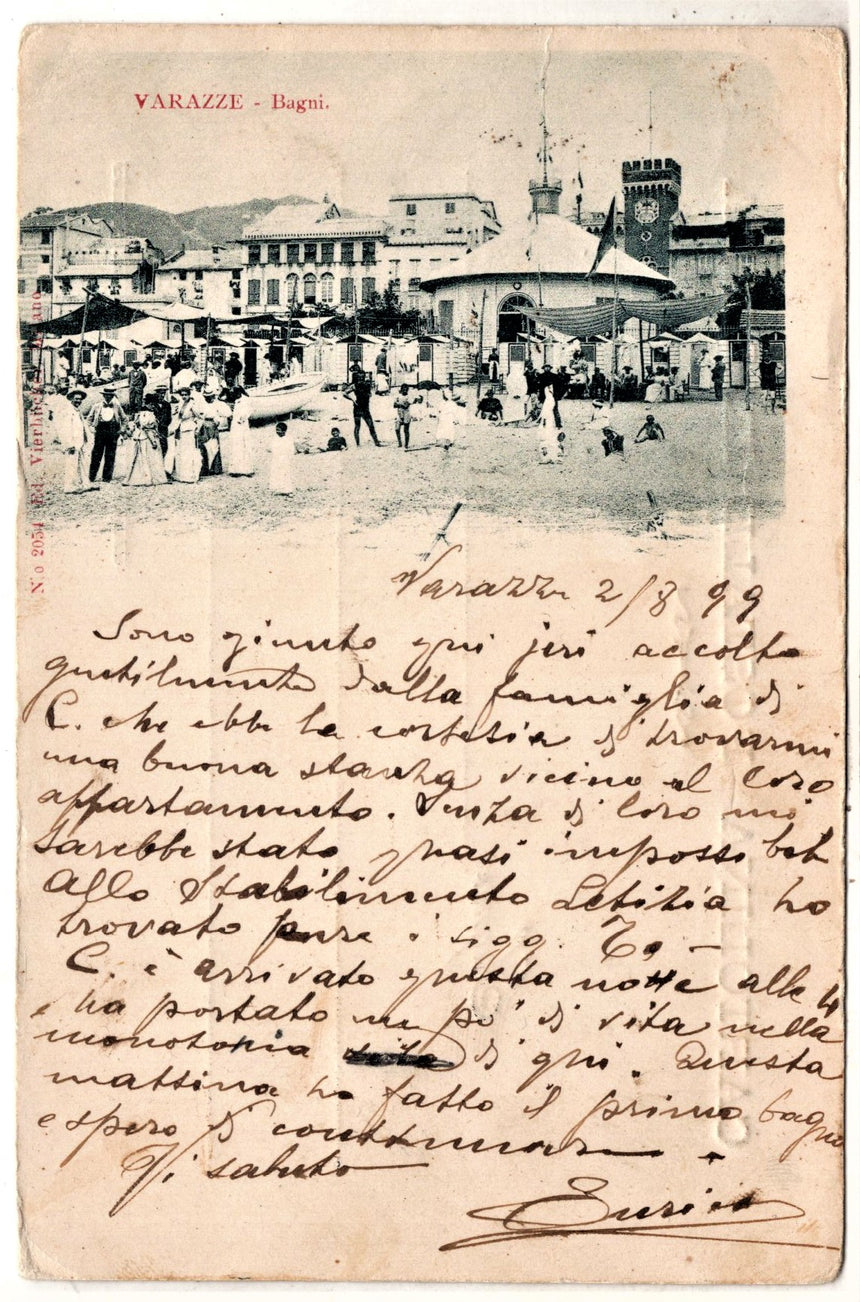 VARAZZE - Bagni.
No 2054 Ed. Vierbücher, Milano
Varazze 2/8 99
Sono giunto qui jeri accolto
gentilmente dalla famiglia di
C. che ebbe la cortesia di trovarmi
una buona stanza vicino al loro
appartamento. Senza di loro mi
sarebbe stato quasi impossibile
Allo Stabilimento Letizia ho
trovato pure i sigg.
C. è arrivato questa notte alle 4
ha portato un po' di vita nella
monotonia di qui. Questa
mattina ho fatto il primo bagno
e spero di continuare.
Vi saluto
Enrico